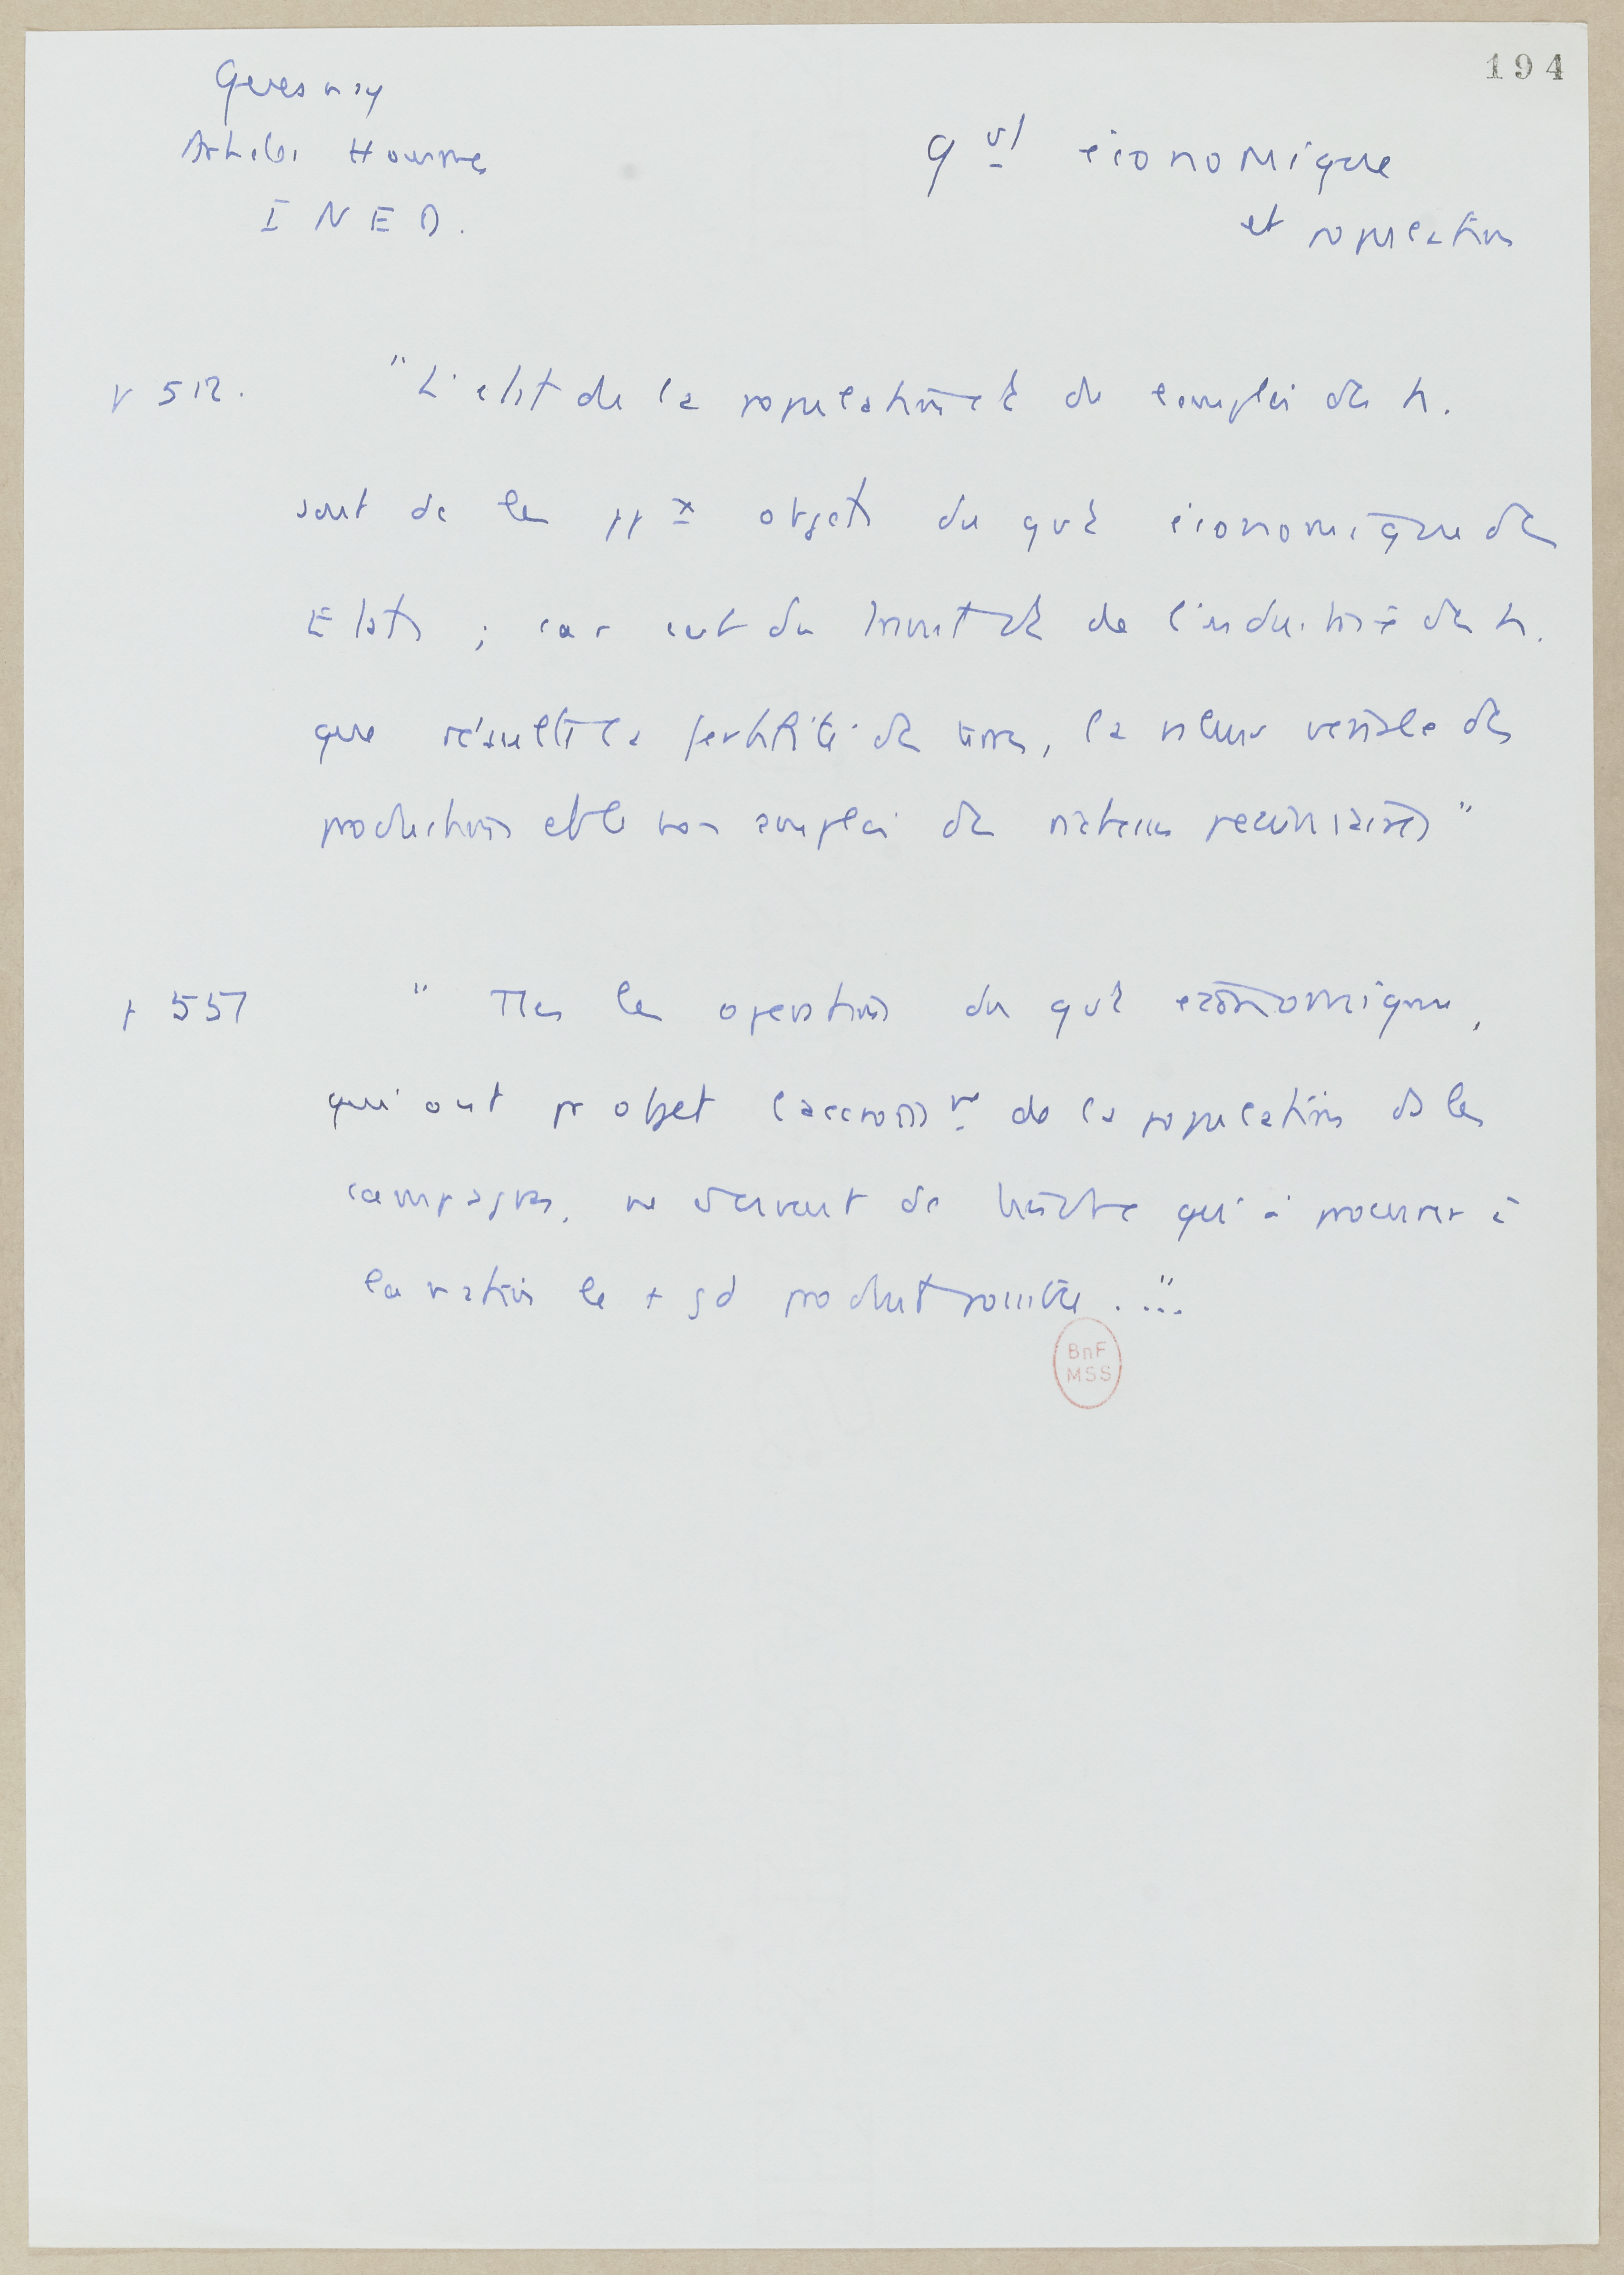 194
Quesnay
Article Hommes
INED.
gvt économique
et population
p 512.
"L'état de la population et de l'emploi des h.
sont dc les ppx objets du gvt économique des
Etats ; car c'est du travail et de l'industrie des h.
que résulte la fertilité des terres, la valeur vénale des
productions et le bon emploi des richesses pécuniaires"
p 557
" Ttes les opérations du gvt économique,
qui ont pr objet l'accroissmt de la population ds les
campagnes, ne servent qu'à procurer à
la nation le + gd produit possible . ..."
BnF
MSS